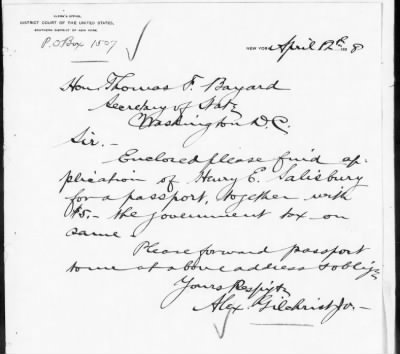 CLERK'S OFFICE,
DISTRICT COURT OF THE UNITED STATES,
SOUTHERN DISTRICT OF NEW YORK.
P.O Box 1507
NEW YORK, April 12th 1888
Hon. Thomas F. Bayard
Secretary of State
Washington D.C.
Sir. -
Enclosed please find ap-
plication of Henry E. Salisbury
for a passport, together with
$5 - the government tax on
same.
Please forward passport
to me at above address & oblige
Yours Respty
Alex. Gilchrist Jr -